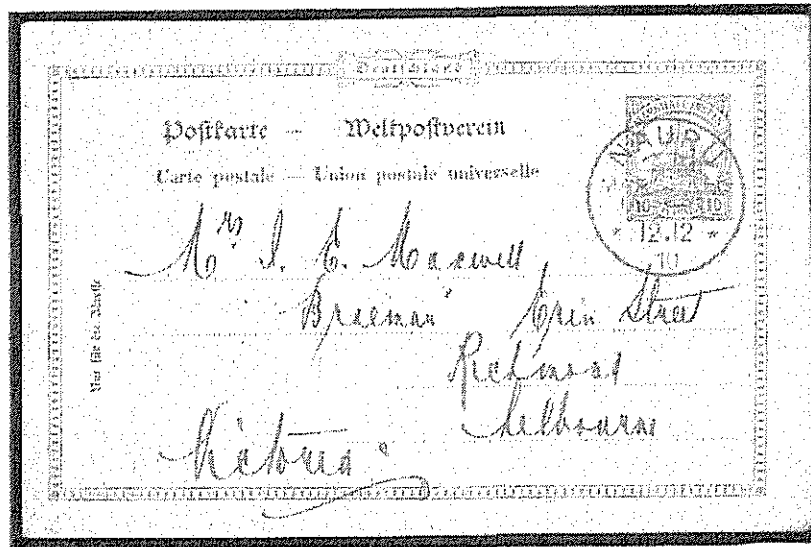 Postkarte — Weltpostverein
Carte postale — Union postale universelle
NAURU
MARSHALL-INSELN
10 10
* 12.12 *
10
Mrs. E. Maxwell
Braemar Erin Street
Richmond
Melbourne
Victoria
Nur für die Adresse